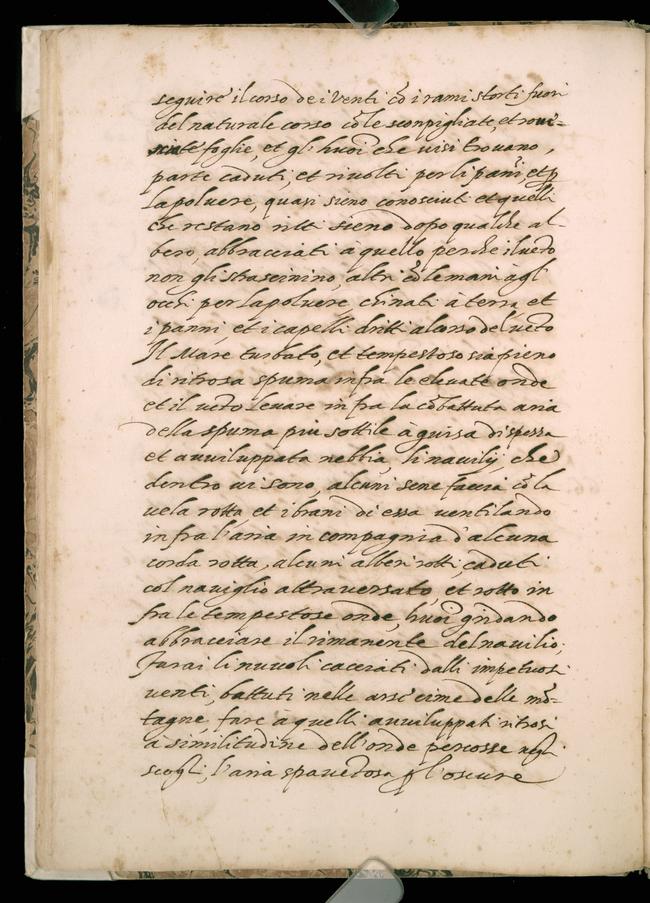 seguire il corso de i Venti cõ i rami storti fuori
del naturale corso cõ le sconpigliate, et roui-
sciate foglie, et gl'huoĩ che visi trouano,
parte caduti, et riuolti per li pañi, et p̱
la poluere, quasi sieno conosciuti et quelli
che restano ritti sieno dopo qualche al-
bero, abbracciati à quello perche il uẽto
non gli strascinino, altri cõ le mani agl'
occhi per la poluere chinati à terra, et
i panni, et i capelli dritti al corso del uẽto
Il Mare turbato, et tempestoso sia pieno
di ritrosa spuma infra le eleuate onde
et il uẽto leuare infra la cõbattuta aria
della spuma piu sottile à guisa di spessa
et auuiluppata nebbia, li nauilij, che
dentro ui sono, alcuni sene faccia cõ la
uela rotta et i brani di essa ventilando
infra l'aria in compagnia d'alcuna
corda rotta, alcuni alberi rotti, caduti
col nauiglio attrauersato, et rotto in
fra le tempestose onde, huoĩ gridando
abbracciare il rimanente del nauilio;
farai li nuuoli cacciati dalli impetuosi
venti, battuti nelle alte cime delle mõ-
tagne, fare a quelli auuiluppati ritrosi
à similitudine dell'onde percosse negli
scogli, l'aria spauẽtosa p̱ l'oscure